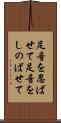 足音を忍ば
せて足音を
しのばせて